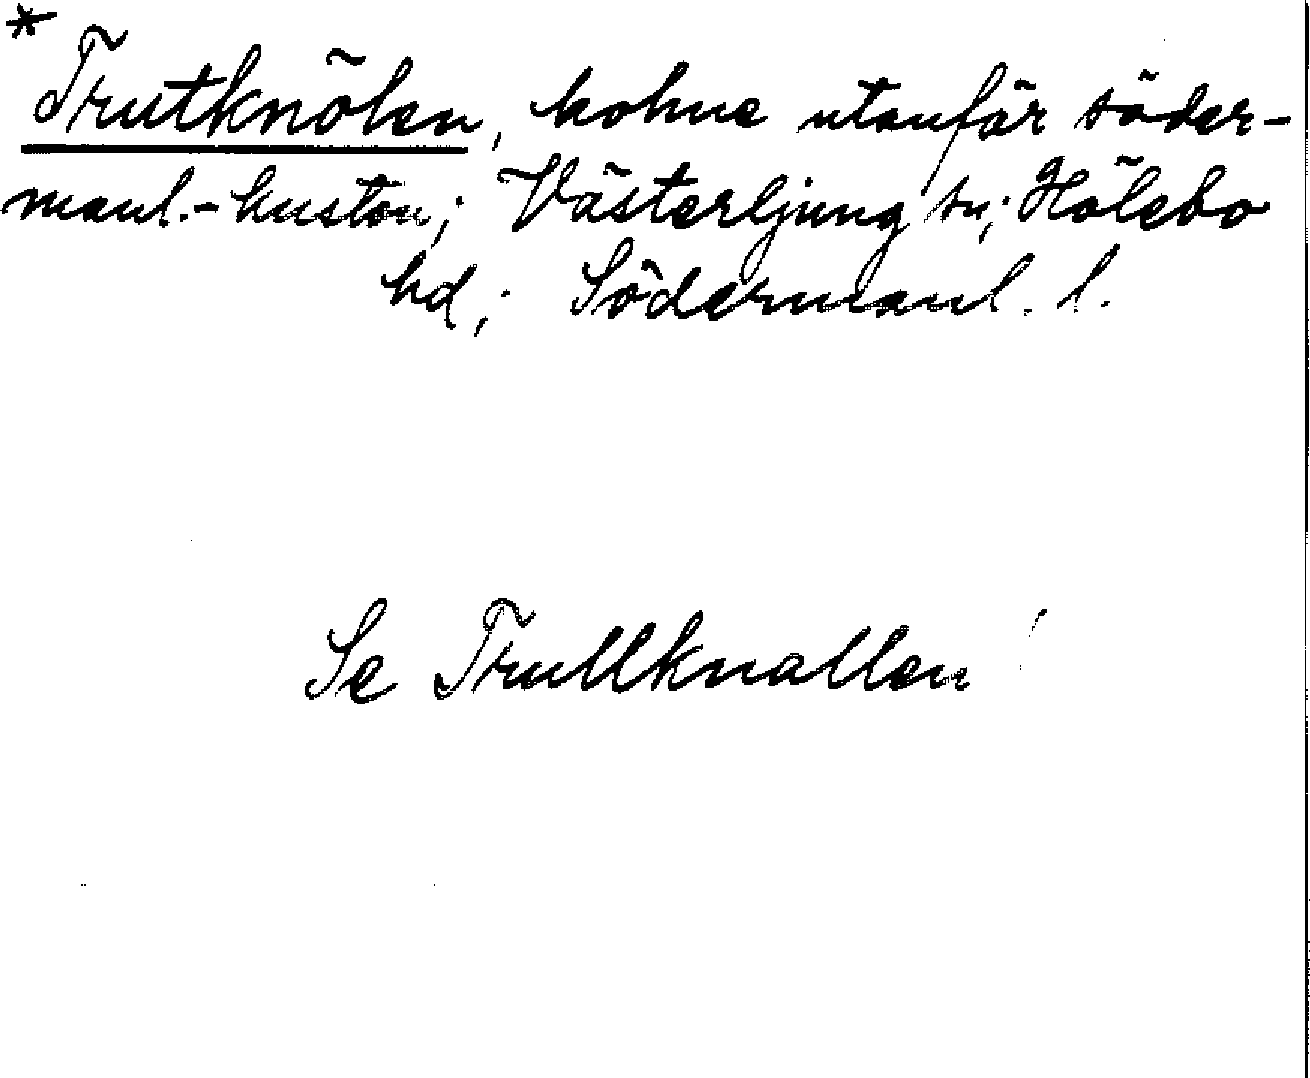 * Trutknölen, kohne utanför söder-
manl.-kusten; Västerljung sn; Hölebo
hd; Södermanl. l.
Se Trullknallen